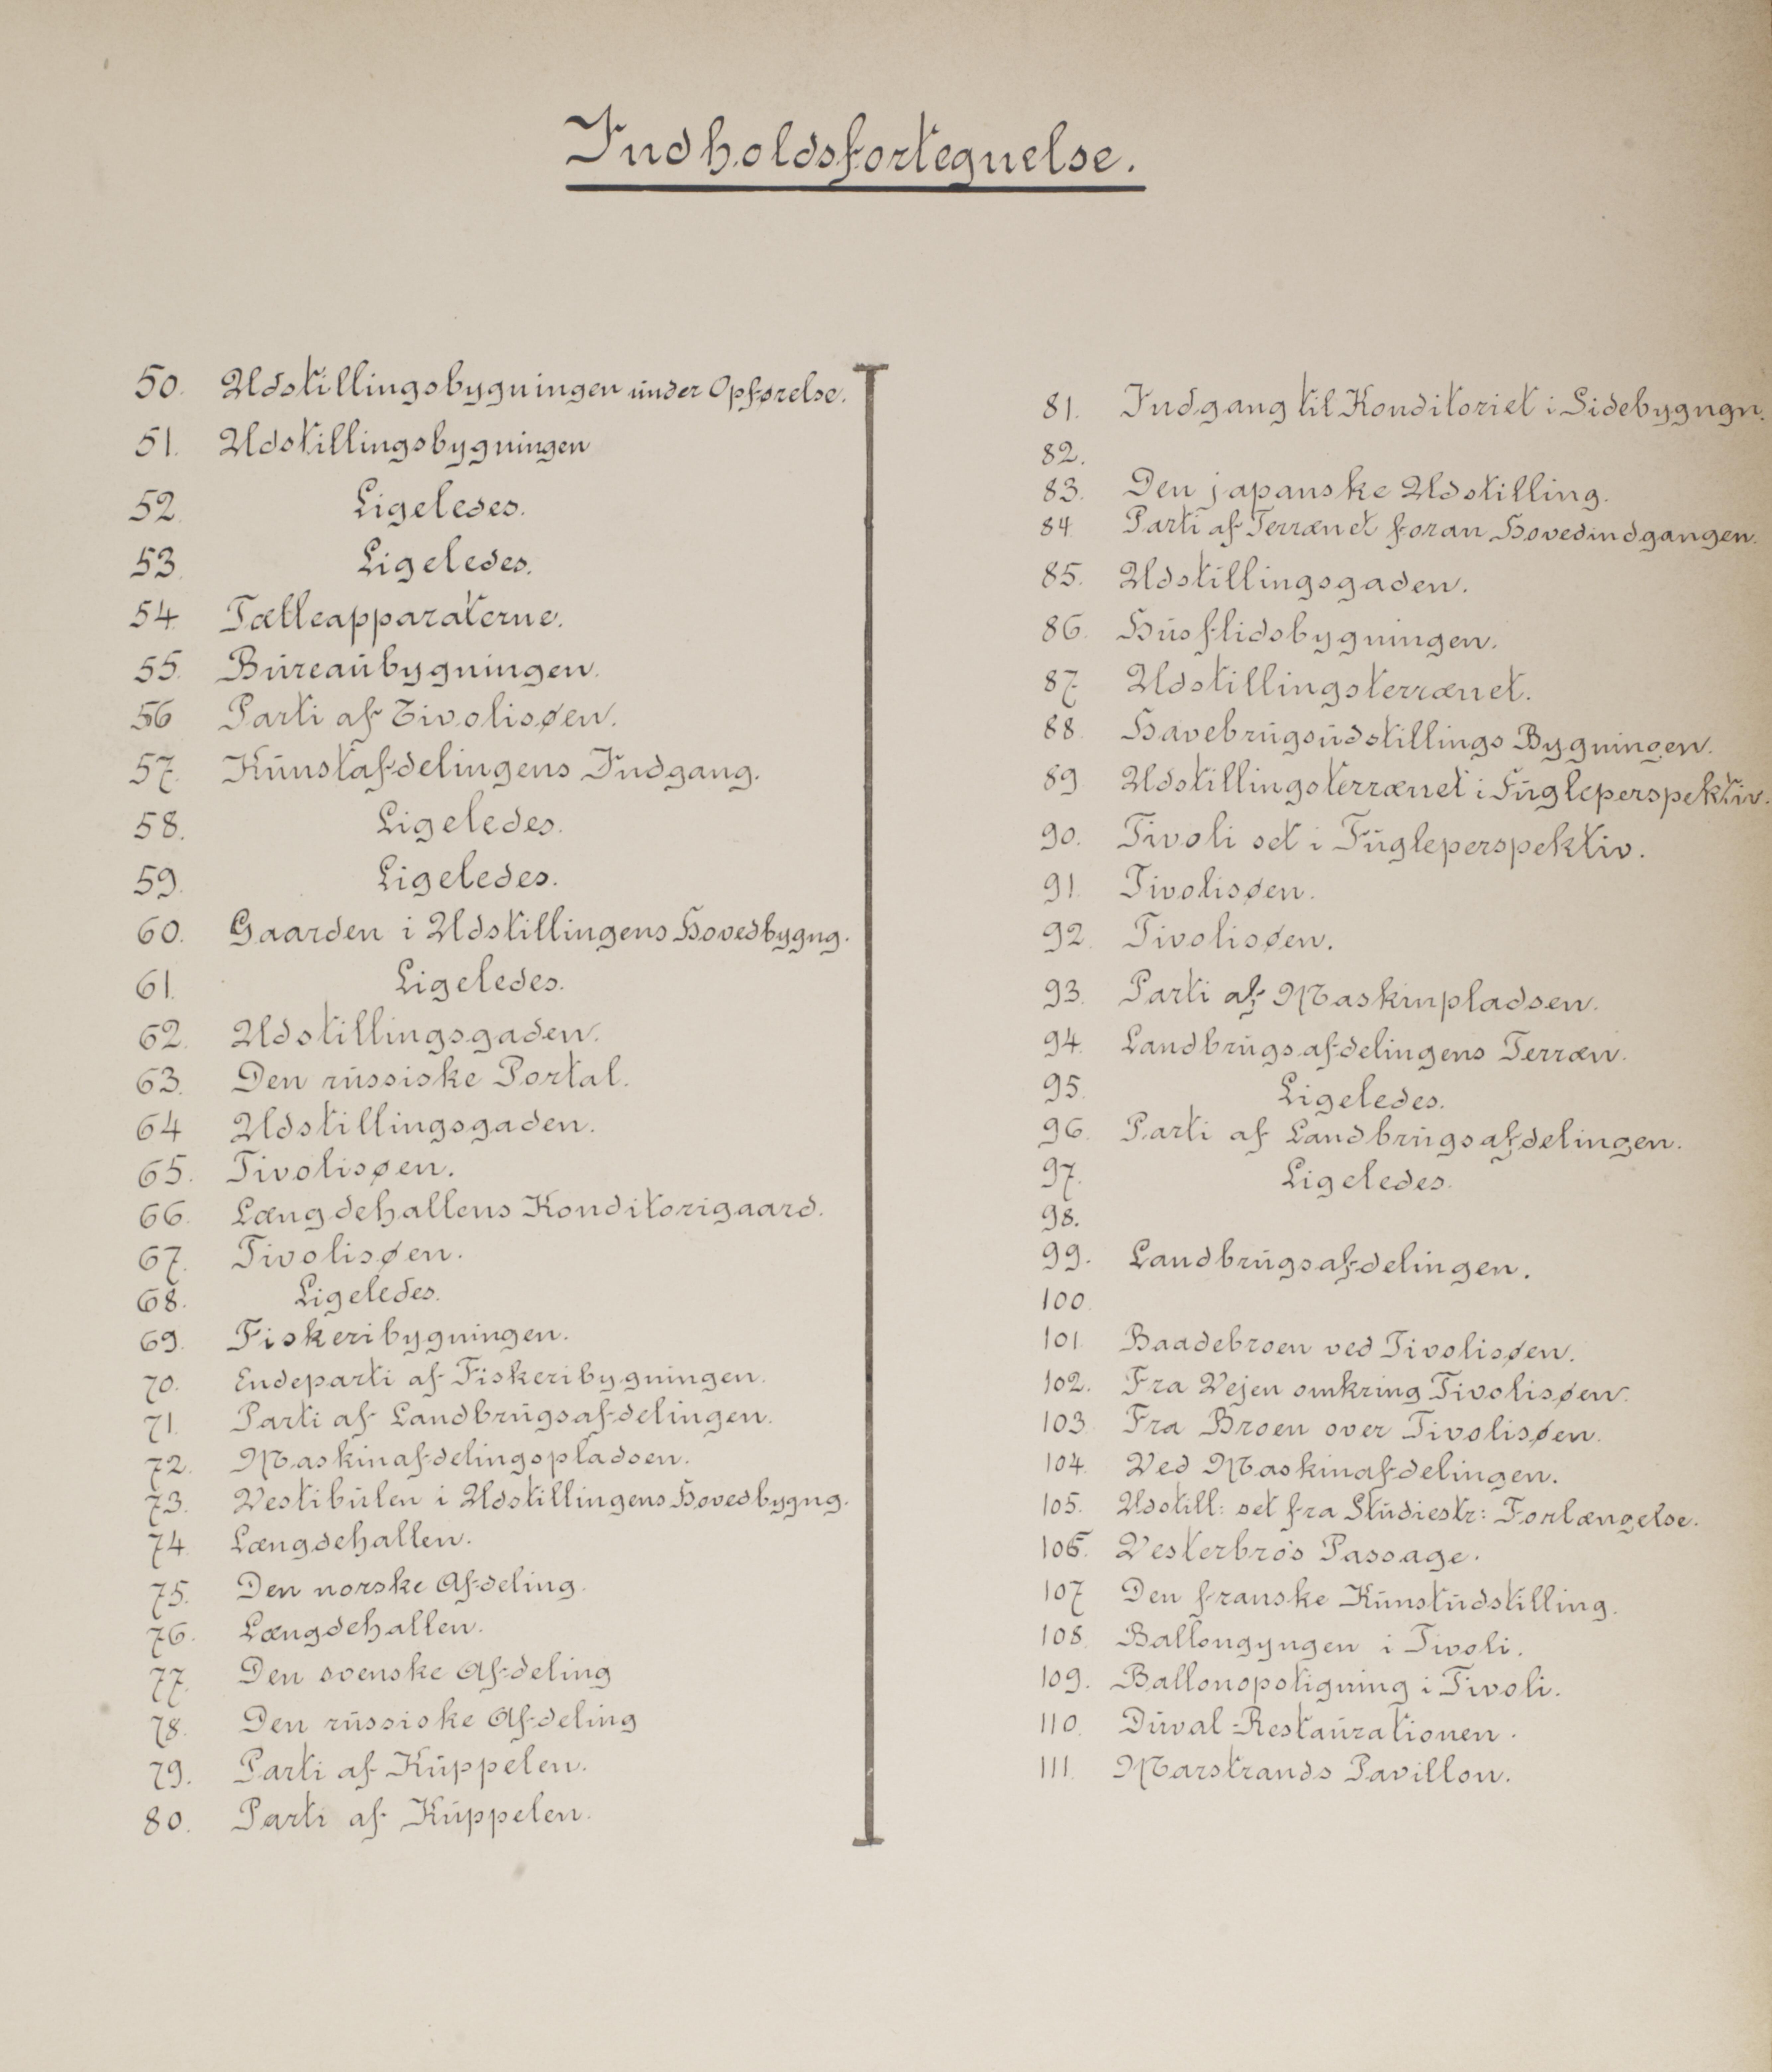 Indholdsfortegnelse.
50. Udstillingsbygningen under Opførelse.
51. Udstillingsbygningen
52. Ligeledes.
53. Ligeledes.
54. Tælleapparaterne.
55. Bureaubygningen.
56 Parti af Tivolisøen.
57. Kunstafdelingens Indgang.
58. Ligeledes.
59. Ligeledes.
60. Gaarden i Udstillingens Hovedbygng.
61. Ligeledes.
62. Udstillingsgaden.
63. Den russiske Portal.
64 Udstillingsgaden.
65. Tivolisøen.
66. Længdehallens Konditorigaard.
67. Tivolisøen.
68. Ligeledes.
69. Fiskeribygningen.
70. Endeparti af Fiskeribygningen.
71. Parti af Landbrugsafdelingen.
72. Maskinafdelingspladsen.
73. Vestibulen i Udstillingens Hovedbygng.
74 Længdehallen.
75. Den norske Afdeling.
76. Længdehallen.
77. Den svenske Afdeling
78. Den russiske Afdeling
79. Parti af Kuppelen.
80. Parti af Kuppelen.
81. Indgang til Konditoriet i Sidebygngn.
82.
83. Den japanske Udstilling.
84 Parti af Terrænet foran Hovedindgangen.
85. Udstillingsgaden.
86. Husflidsbygningen.
87. Udstillingsterrænet.
88. Havebrugsudstillings Bygningen.
89 Udstillingsterrænet i Fugleperspektiv.
90. Tivoli set i Fugleperspektiv.
91. Tivolisøen.
92. Tivolisøen.
93. Parti af Maskinpladsen.
94. Landbrugsafdelingens Terræn.
95. Ligeledes.
96. Parti af Landbrugsafdelingen.
97. Ligeledes.
98.
99. Landbrugsafdelingen.
100.
101. Baadebroen ved Tivolisøen.
102. Fra Vejen omkring Tivolisøen.
103. Fra Broen over Tivolisøen.
104. Ved Maskinafdelingen.
105. Udstill: set fra Studiestr: Forlængelse.
106. Vesterbro's Passage.
107 Den franske Kunstudstilling.
108. Ballongyngen i Tivoli.
109. Ballonopstigning i Tivoli.
110. Duval-Restaurationen.
111. Marstrands Pavillon.